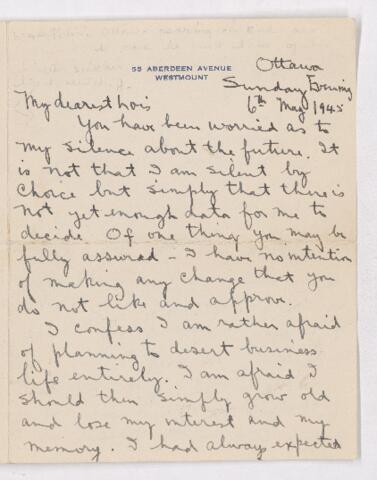 55 ABERDEEN AVENUE
WESTMOUNT
Ottawa
Sunday Evening
6th May 1945
My dearest Lois
You have been worried as to
my silence about the future. It
is not that I am silent by
choice but simply that there is
not yet enough data for me to
decide. Of one thing you may be
fully assured - I have no intention
of making any change that you
do not like and approve.
I confess I am rather afraid
of planning to desert business
life entirely. I am afraid I
should then simply grow old
and lose my interest and my
memory. I had always expected